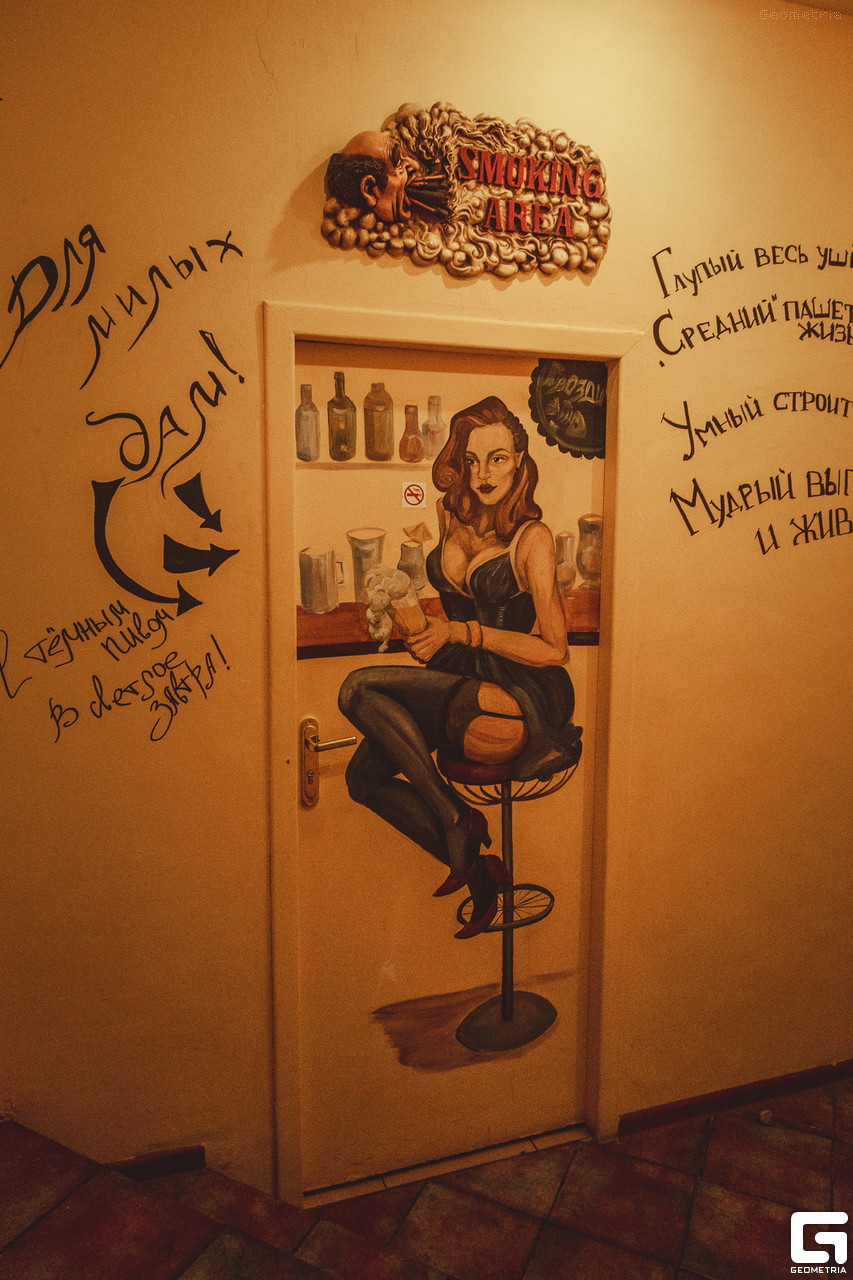 Geometria
SMOKING
AREA
Для
милых
дам!
С тёмным
пивом
в светлое
завтра!
Глупый весь
"Средний"
Умный строит
Мудрый
и
GEOMETRIA